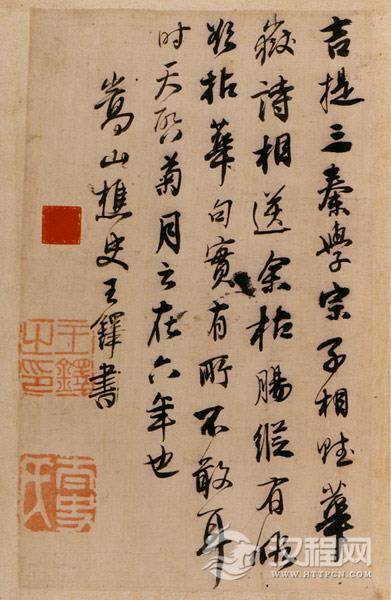 吉提三秦學宗子相賦華
嶽詩相送余枯腸縱有
拈華句實有所不敢耳
时天啓菊月之在六年也
嵩山樵史王鐸書
王鐸之印
汉程网
WWW.HTTPCN.COM